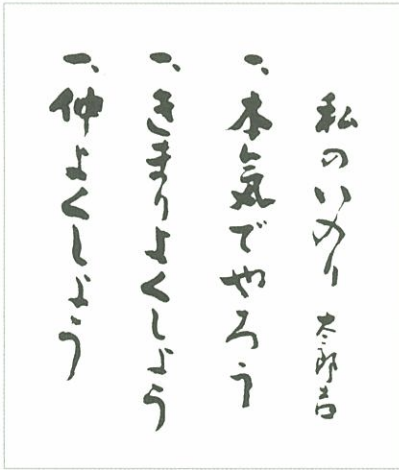 私のいのり 太郎吉
一、本気でやろう
一、きまりよくしよう
一、仲よくしよう